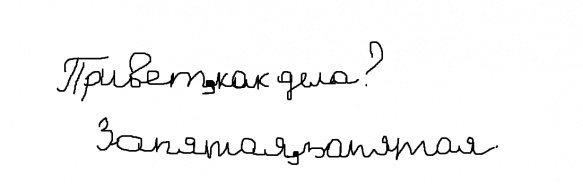 Привет,как дела?
Запятая,запятая.